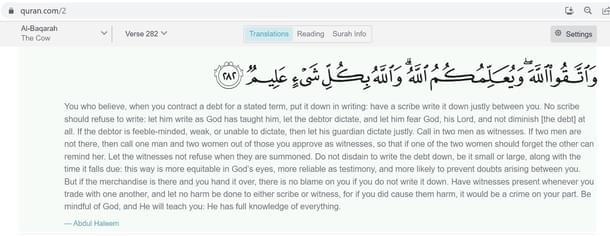 quran.com/2
Al-Baqarah
The Cow
Verse 282
Translations Reading Surah Info
Settings
وَٱتَّقُوا۟ ٱللَّهَ ۖ وَيُعَلِّمُكُمُ ٱللَّهُ ۗ وَٱللَّهُ بِكُلِّ شَىْءٍ عَلِيمٌ ٢٨٢
You who believe, when you contract a debt for a stated term, put it down in writing: have a scribe write it down justly between you. No scribe
should refuse to write: let him write as God has taught him, let the debtor dictate, and let him fear God, his Lord, and not diminish [the debt] at
all. If the debtor is feeble-minded, weak, or unable to dictate, then let his guardian dictate justly. Call in two men as witnesses. If two men are
not there, then call one man and two women out of those you approve as witnesses, so that if one of the two women should forget the other can
remind her. Let the witnesses not refuse when they are summoned. Do not disdain to write the debt down, be it small or large, along with the
time it falls due: this way is more equitable in God's eyes, more reliable as testimony, and more likely to prevent doubts arising between you.
But if the merchandise is there and you hand it over, there is no blame on you if you do not write it down. Have witnesses present whenever you
trade with one another, and let no harm be done to either scribe or witness, for if you did cause them harm, it would be a crime on your part. Be
mindful of God, and He will teach you: He has full knowledge of everything.
— Abdul Haleem